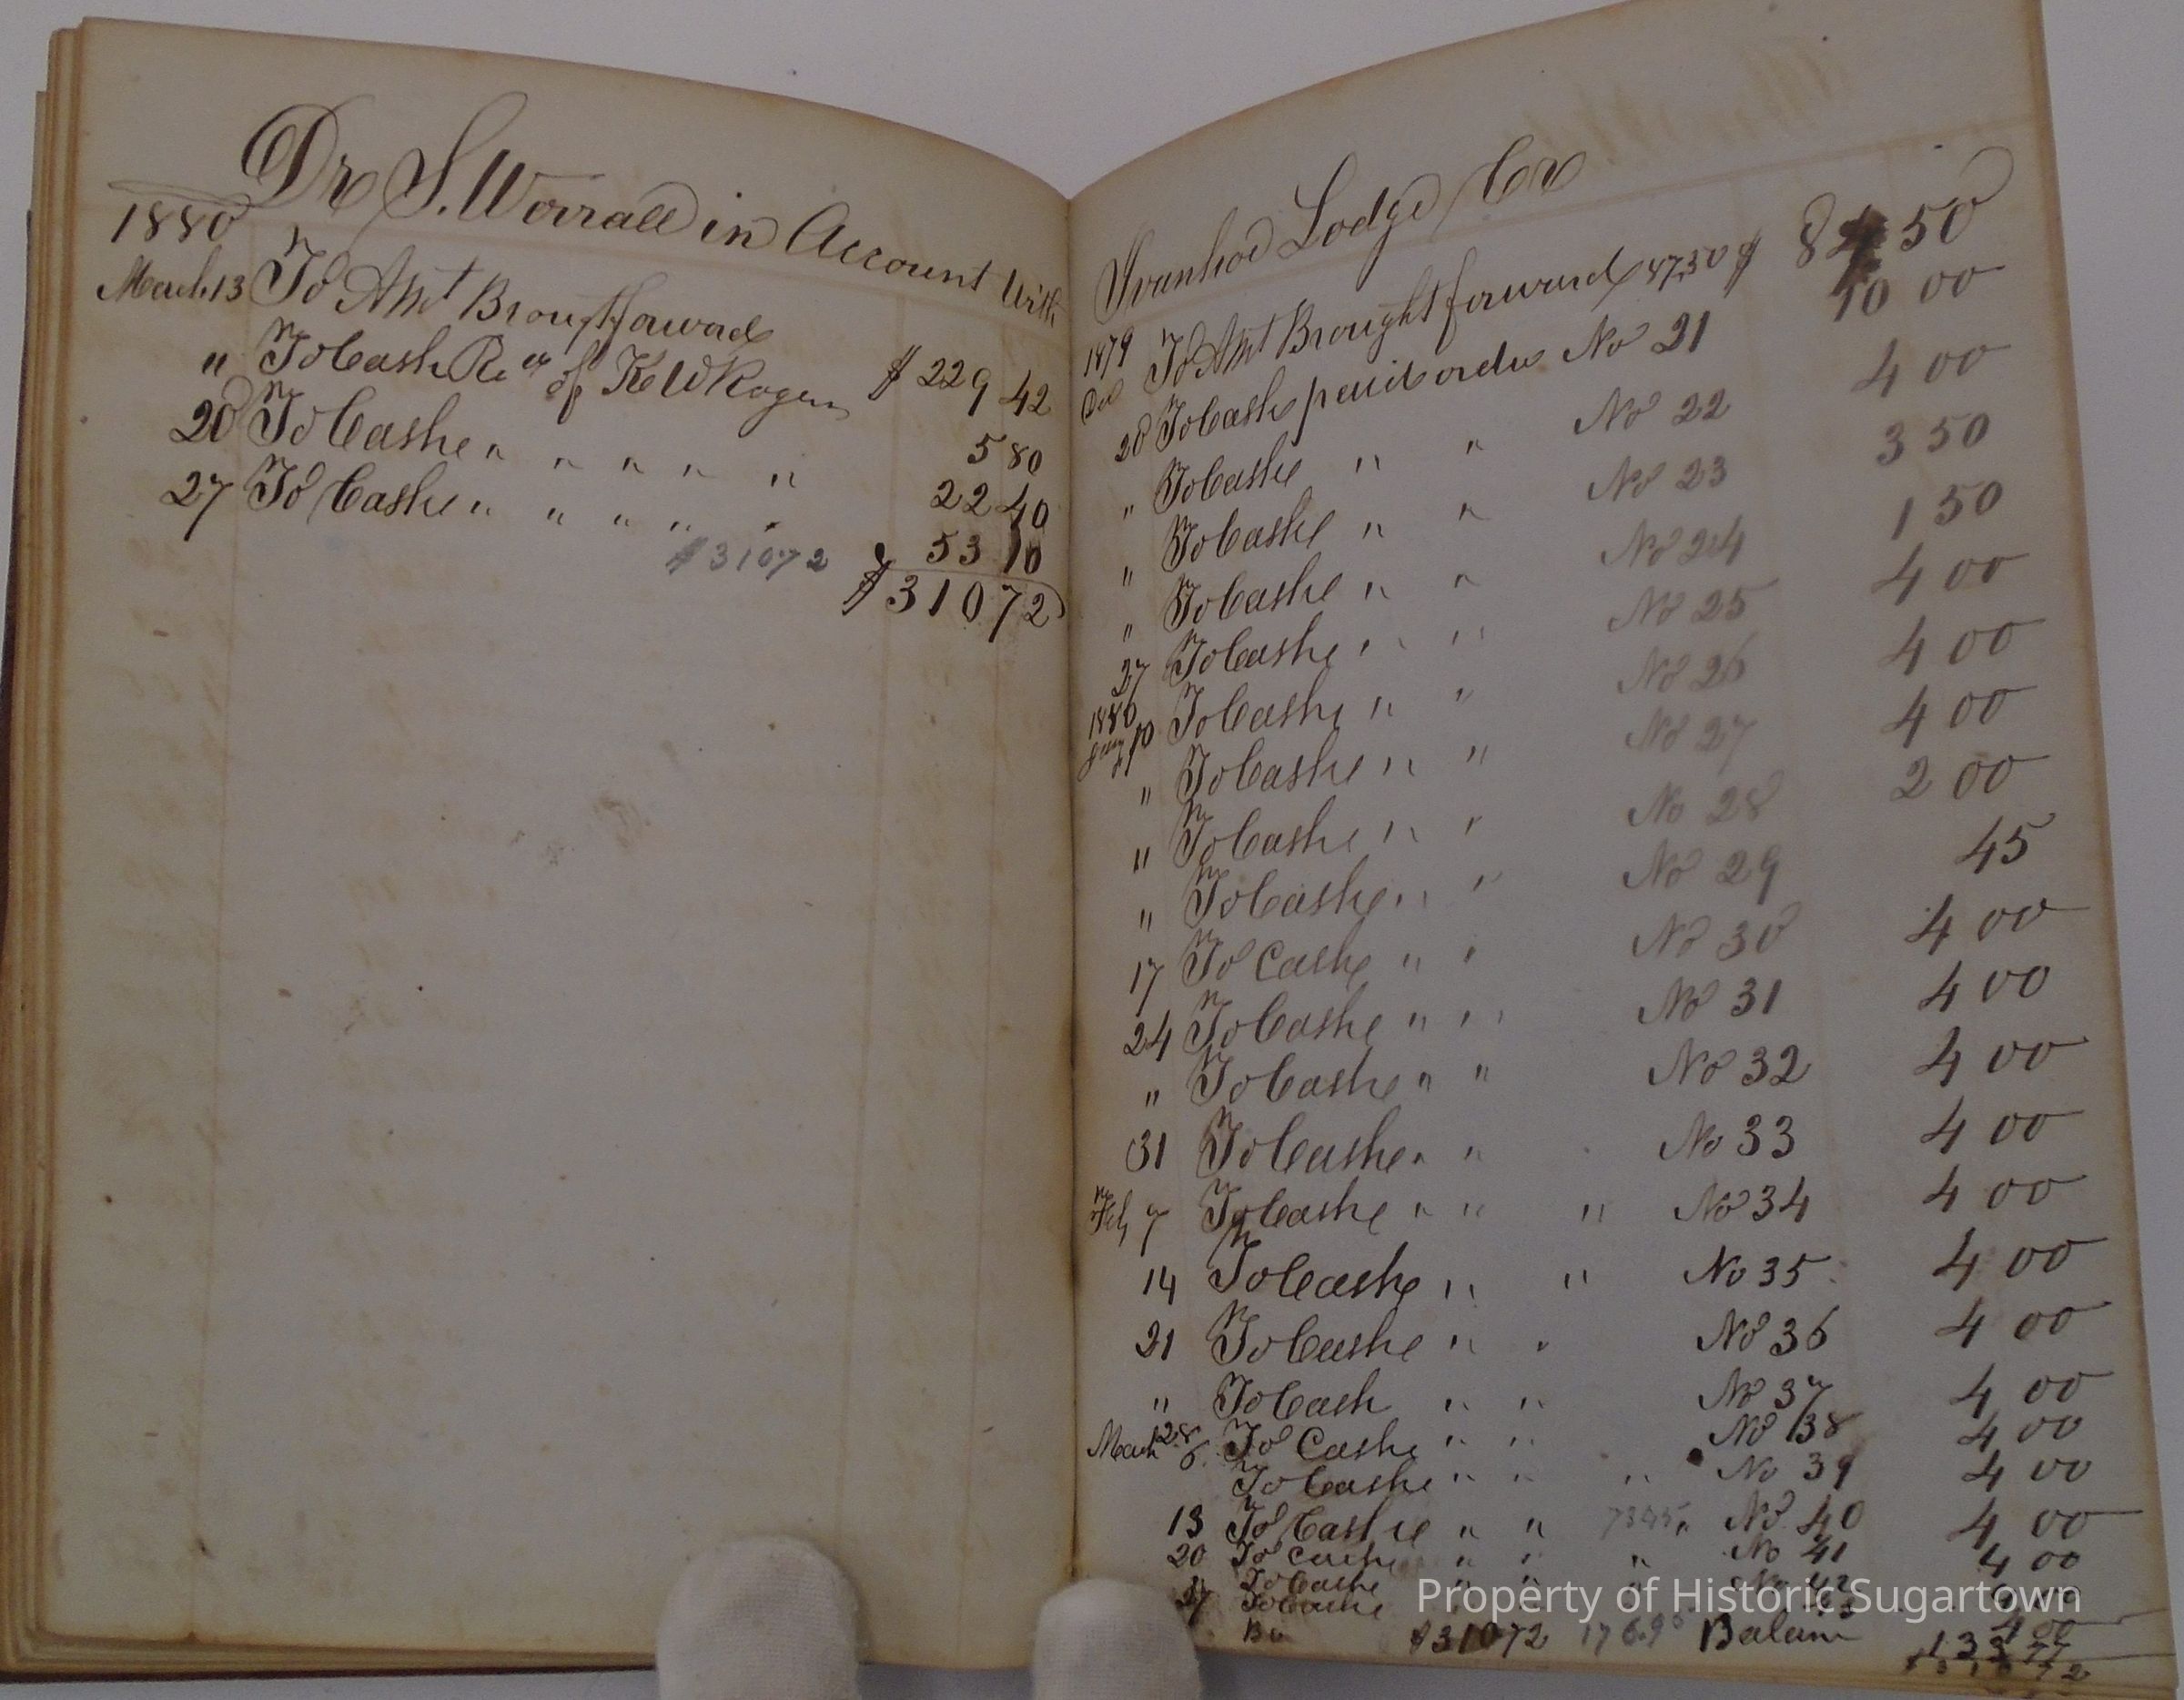 Dr S. Worrall in Account With
1880
March 13 To Amt Brought forward $ 229 42
" To Cash Recd of K W Rogers 5 80
20 To Cash " " " " " 22 40
27 To Cash " " " " " 53 10
$31072 $310 72
Ivanhoe Lodge Cr
1879 To Amt Brought forward 47,50 $ 84 50
Dec 20 To Cash paid order No 21 10 00
" To Cash " " No 22 4 00
" To Cash " " No 23 3 50
" To Cash " " No 24 1 50
27 To Cash " " No 25 4 00
1880
Jany 10 To Cash " " No 26 4 00
" To Cash " " No 27 4 00
" To Cash " " No 28 2 00
" To Cash " " No 29 45
17 To Cash " " No 30 4 00
24 To Cash " " No 31 4 00
" To Cash " " No 32 4 00
31 To Cash " " No 33 4 00
Feb 7 To Cash " " " No 34 4 00
14 To Cash " " No 35 4 00
21 To Cash " " No 36 4 00
" To Cash " " No 37 4 00
28 To Cash " " No 38 4 00
March 6 To Cash " " " No 39 4 00
13 To Cash " " No 40 4 00
20 To Cash " " " No 41 4 00
To Cash " " "
27 To Cash 4 00
$31072 176.95 Balance 133 77
310 72
Property of Historic Sugartown